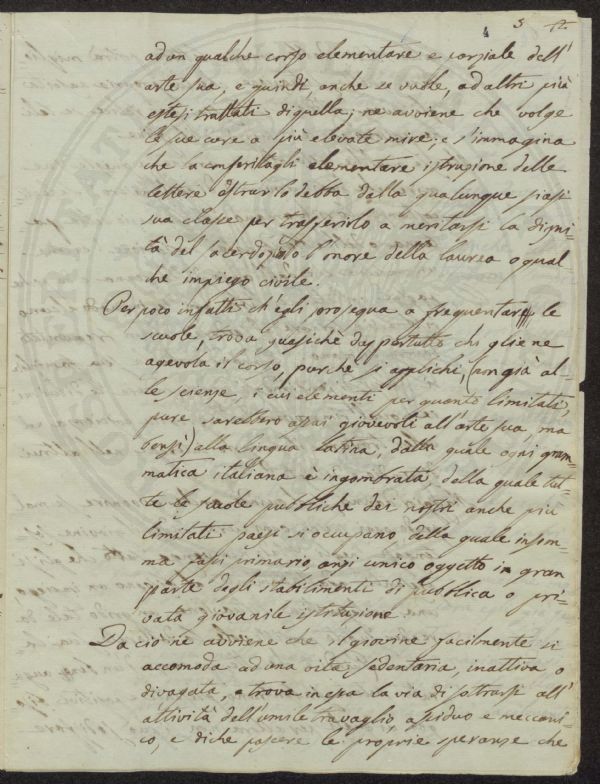 4 3 12
ad un qualche corso elementare e corsiale dell'
arte sua, e quindi anche se vuole, ad altri più
estesi trattati di quella; ne avviene che volge
le sue cure a più elevate mire; e s'immagina
che la conferitagli elementare istruzione delle
lettere ostrar lo debba dalla qualunque siasi
sua classe per trasferirlo a meritarsi la digni-
tà del sacerdozio l'onore della laurea o qual
che impiego civile.
Per poco infatti ch'egli prosegua a frequentare le
scuole, trova quasichè dappertutto chi gliene
agevola il corso, purchè si applichi, (non già al-
le scienze, i cui elementi per quanto limitati,
pure sarebbero assai giovevoli all'arte sua, ma
bensì) alla lingua latina, dalla quale ogni gram-
matica italiana è ingombrata, della quale tut-
te le scuole pubbliche dei nostri anche più
limitati paesi si occupano, della quale insom-
ma fassi primario, anzi unico oggetto in gran
parte degli stabilimenti di pubblica o pri-
vata giovanile istruzione.
Da ciò ne avviene che il giovine facilmente si
accomoda ad una vita sedentaria, inattiva o
divagata, e trova in essa la via di sottrarsi all'
attività dell'umile travaglio assiduo e meccani-
co, e di che pascere le proprie speranze che